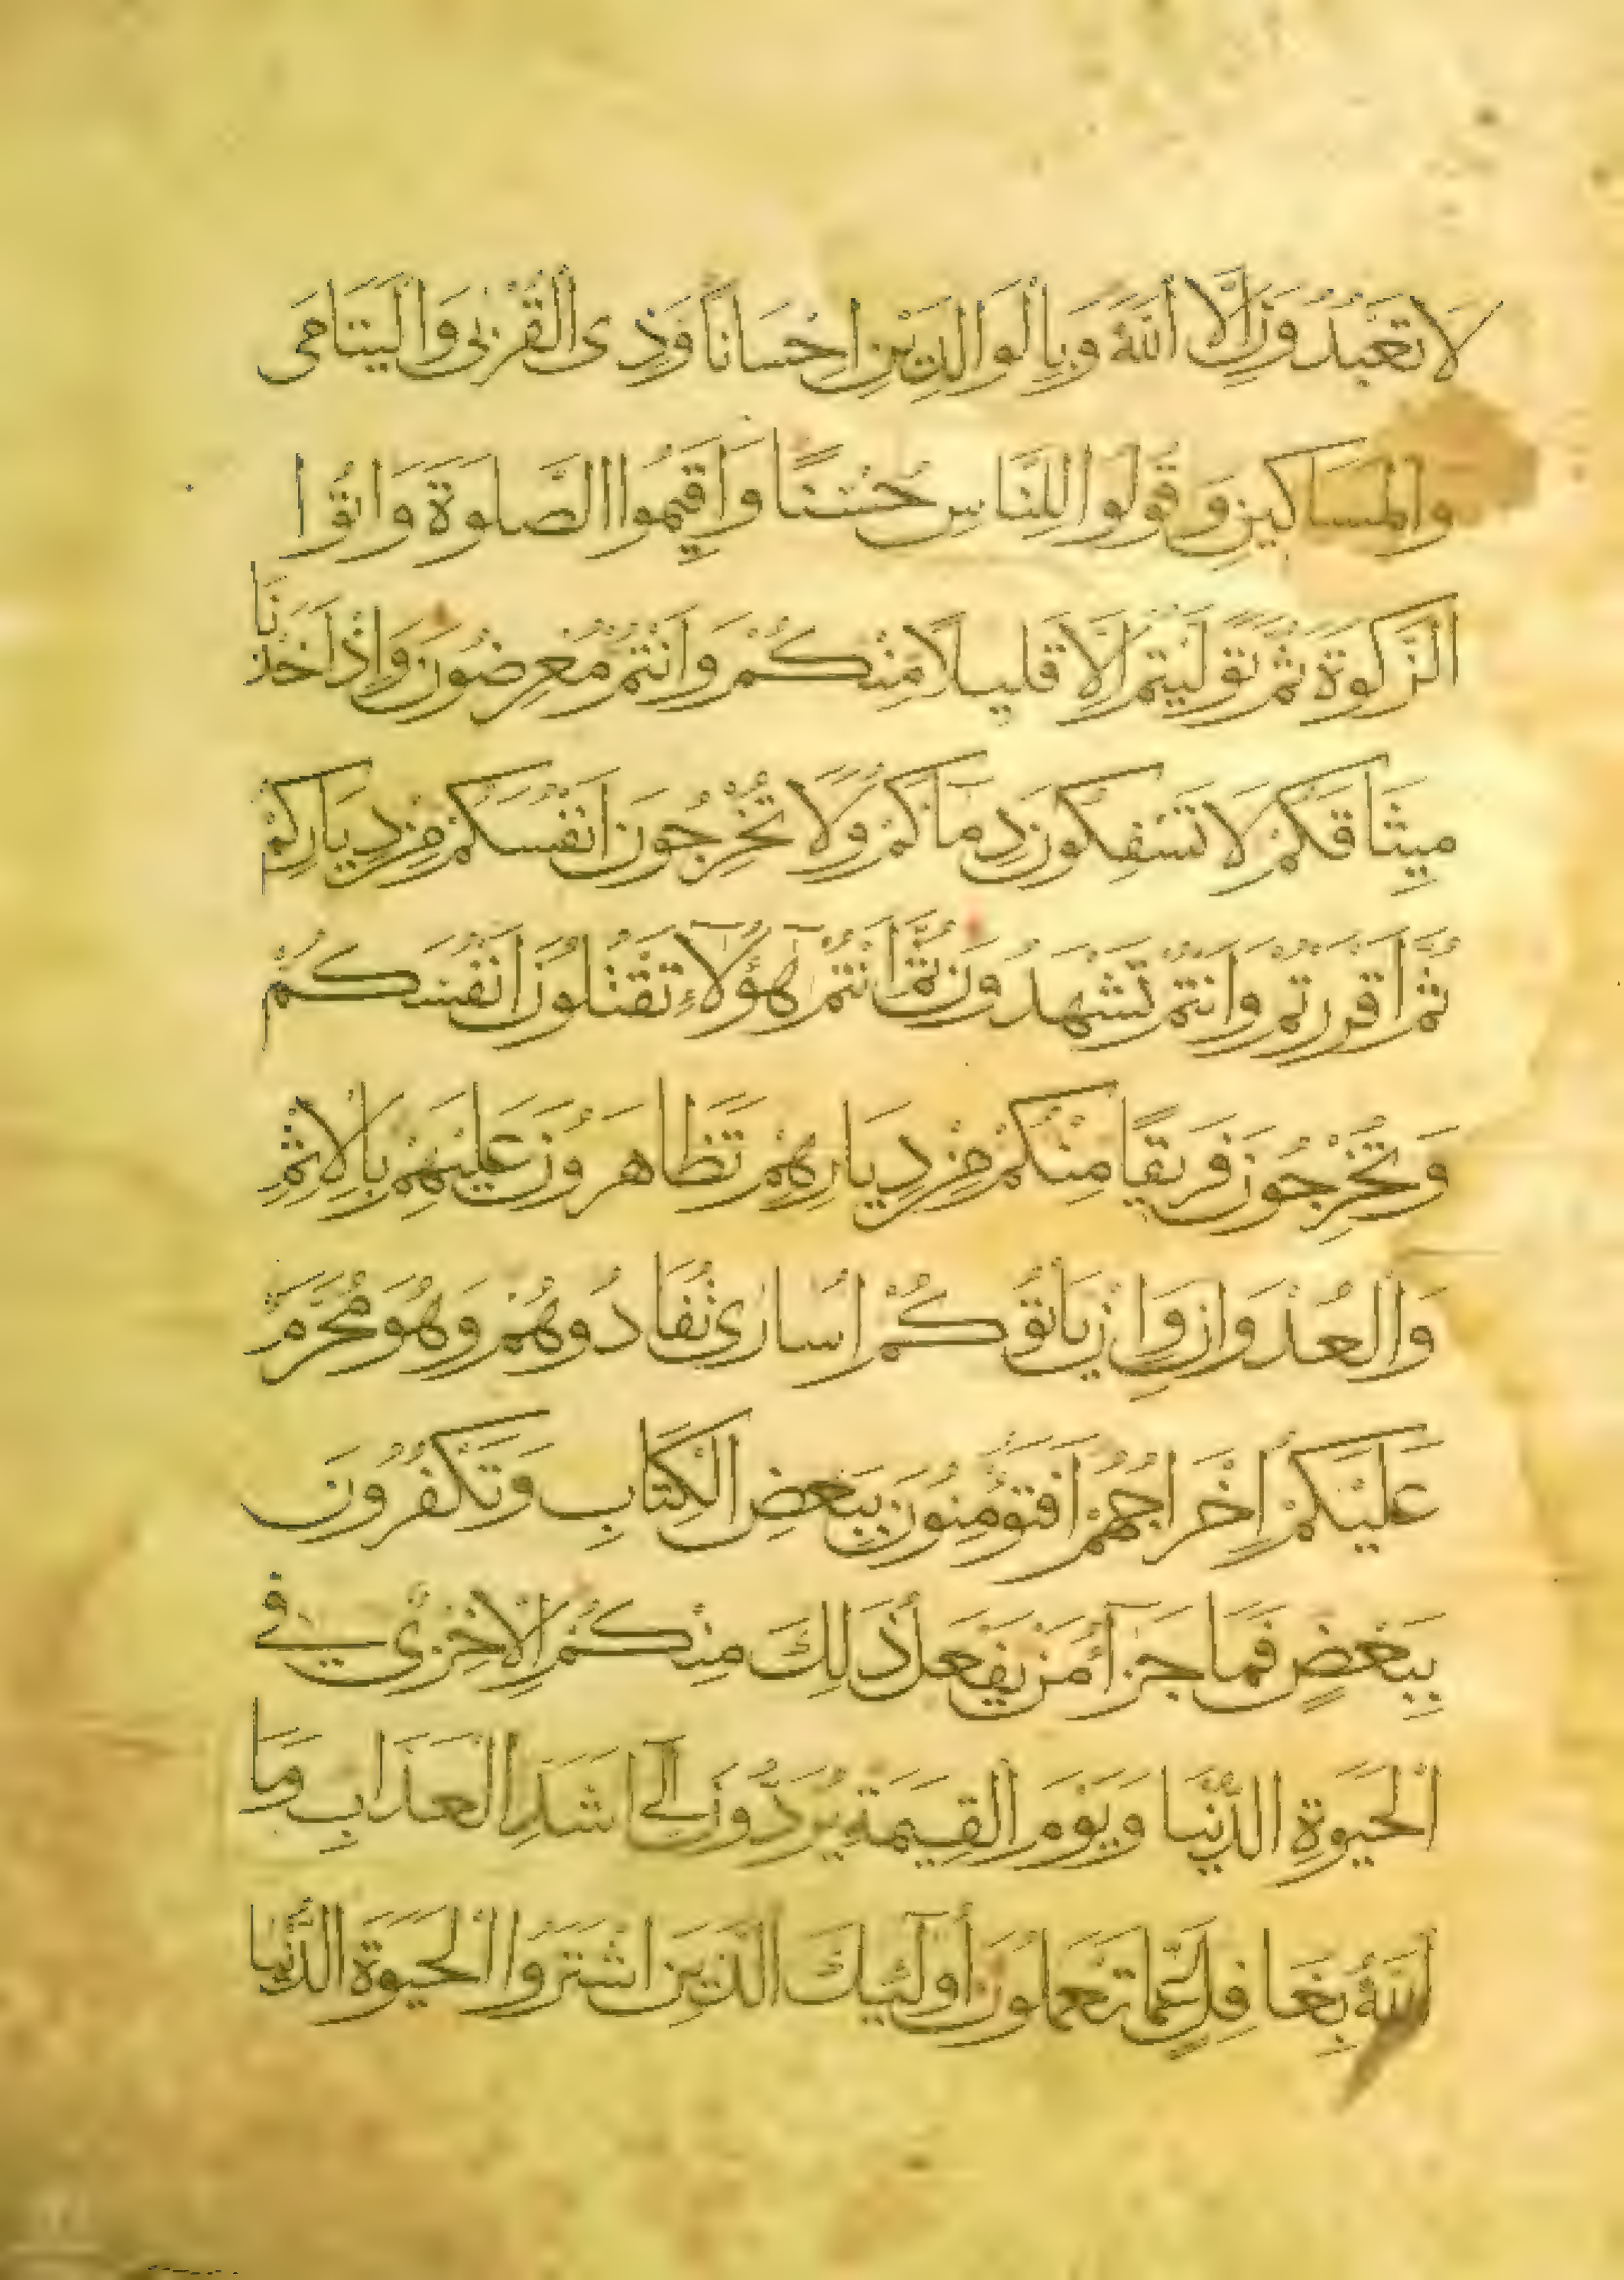 لَا تَعْبُدُونَ إِلَّا اللَّهَ وَبِالْوَالِدَيْنِ اِحْسَانًا وَذِى الْقُرْبٰى وَالْيَتَامَى
وَالْمَسَاكِينِ وَقُولُوا لِلنَّاسِ حُسْنًا وَاَقِيمُوا الصَّلوَةَ وَاتُوا
الزَّكوةَ ثُمَّ تَوَلَّيْتُمْ اِلَّا قَلِيلًا مِنْكُمْ وَاَنْتُمْ مُعْرِضُونَ وَاِذْ اَخَذْنَا
مِيثَاقَكُمْ لَا تَسْفِكُونَ دِمَاكُمْ وَلَا تُخْرِجُونَ اَنْفُسَكُمْ مِنْ دِيَارِكُمْ
ثُمَّ اَقْرَرْتُمْ وَاَنْتُمْ تَشْهَدُونَ ثُمَّ اَنْتُمْ هٓؤُلَآءِ تَقْتُلُونَ اَنْفُسَكُمْ
وَتُخْرِجُونَ فَرِيقًا مِنْكُمْ مِنْ دِيَارِهِمْ تَظَاهَرُونَ عَلَيْهِمْ بِالْاِثْمِ
وَالْعُدْوَانِ وَاِنْ يَأْتُوكُمْ اُسَارٰى تُفَادُوهُمْ وَهُوَ مُحَرَّمٌ
عَلَيْكُمْ اِخْرَاجُهُمْ اَفَتُؤْمِنُونَ بِبَعْضِ الْكِتَابِ وَتَكْفُرُونَ
بِبَعْضٍ فَمَا جَزَآءُ مَنْ يَفْعَلُ ذَلِكَ مِنْكُمْ اِلَّا خِزْىٌ فِى
الْحَيوةِ الدُّنْيَا وَيَوْمَ الْقِيمَةِ يُرَدُّونَ اِلَى اَشَدِّ الْعَذَابِ وَمَا
اللَّهُ بِغَافِلٍ عَمَّا تَعْمَلُونَ أُولٓئِكَ الَّذِينَ اشْتَرَوُا الْحَيوةَ الدُّنْيَا